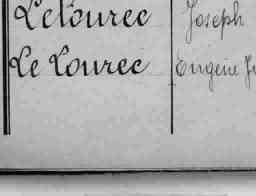 Letourec Joseph
Le Lourec Eugène